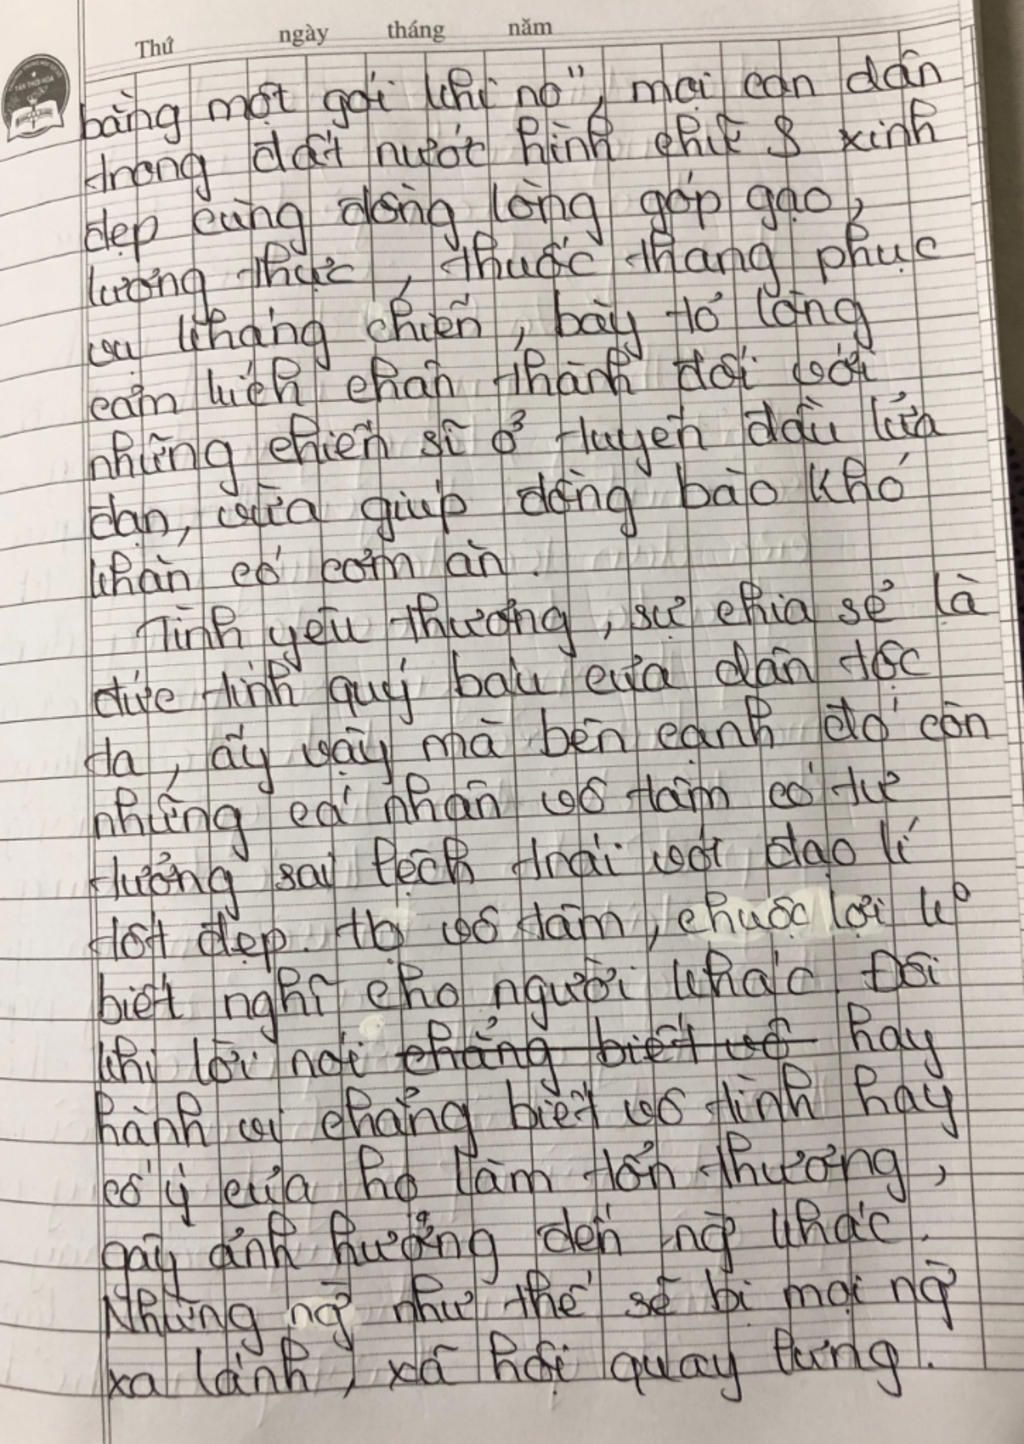 Thứ ngày tháng năm
bằng một gói khi no", mọi con dân
trong đất nước hình chữ S xinh
đẹp cùng đồng lòng góp gạo,
lương thực, thuốc thang phục
vụ kháng chiến, bày tỏ lòng
cảm kích chân thành đối với
những chiến sĩ ở tuyến đầu lửa
đạn, vừa giúp đồng bào khó
khăn có cơm ăn.
Tình yêu thương, sự chia sẻ là
đức tính quý báu của dân tộc
ta, ấy vậy mà bên cạnh đó còn
những cá nhân vô tâm có tư
tưởng sai lệch trái với đạo lí
tốt đẹp. Họ vô tâm, chuộc lợi ko
biết nghĩ cho người khác. Đôi
khi lời nói chẳng biết vô hay
hành vi chẳng biết vô tình hay
cố ý của họ làm tổn thương,
gây ảnh hưởng đến ng` khác.
Những ng` như thế sẽ bị mọi ng`
xa lánh, xã hội quay lưng.